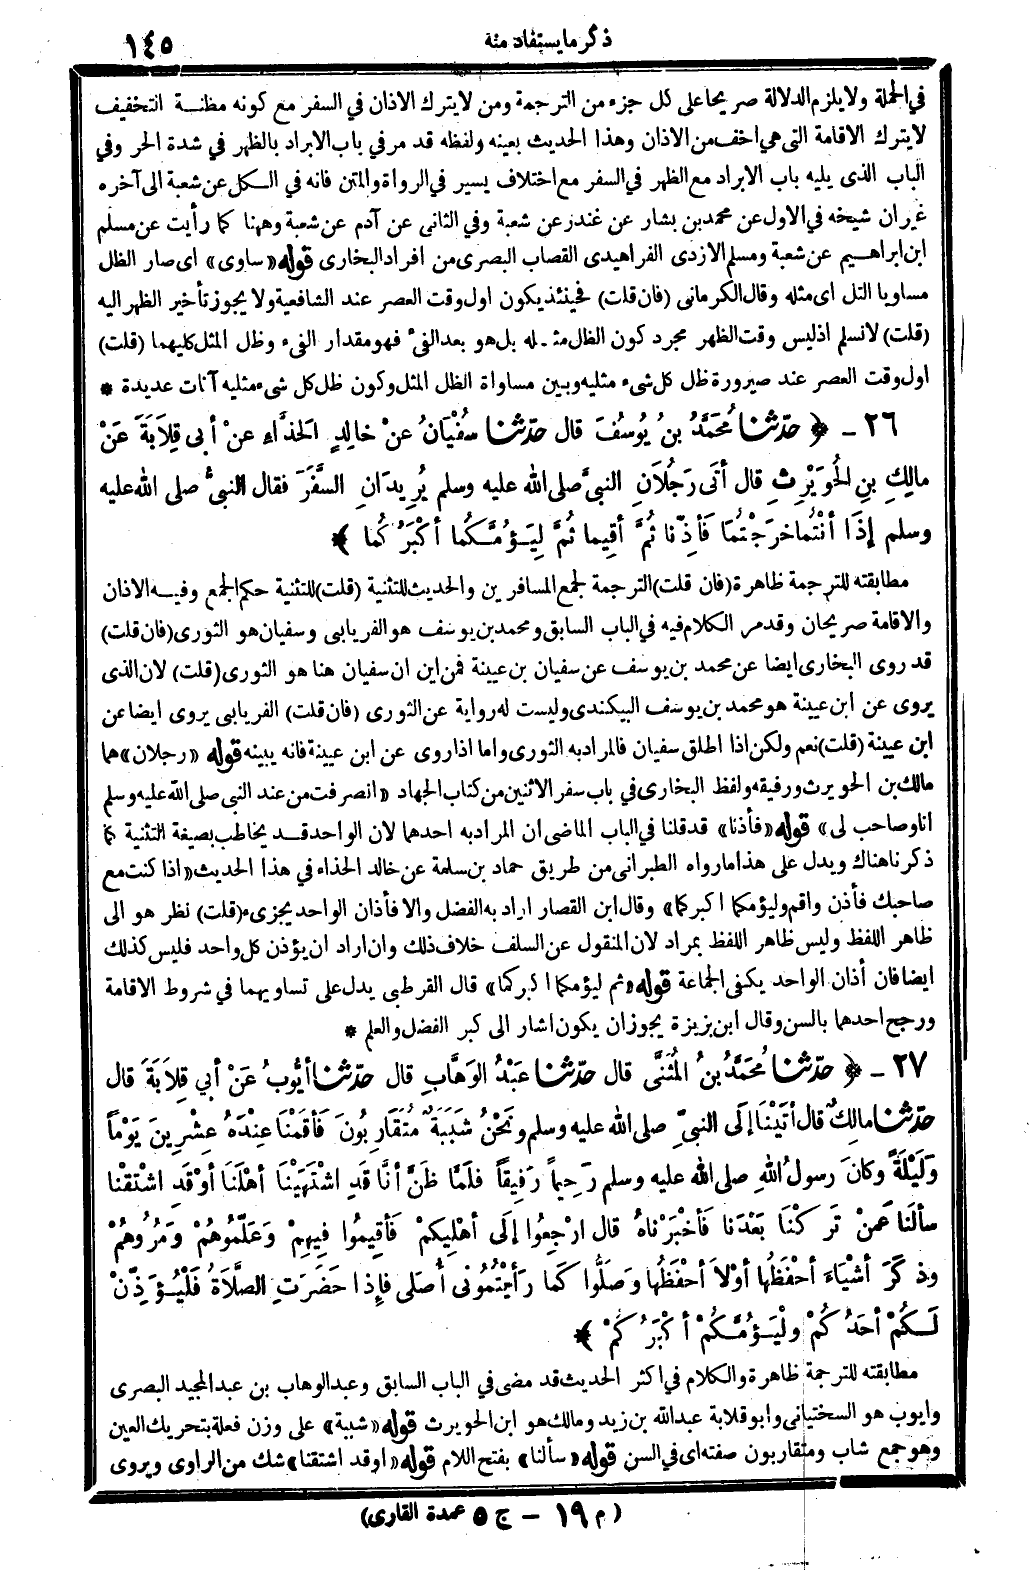 ذكر ما يستفاد منه
١٤٥
في الجملة ولا يلزم الدلالة صريحا على كل جزء من الترجمة ومن لا يترك الاذان في السفر مع كونه مظنة التخفيف
لا يترك الاقامة التي هي اخف من الاذان وهذا الحديث بعينه ولفظه قد مر في باب الابراد بالظهر في شدة الحر وفي
الباب الذى يليه باب الابراد مع الظهر في السفر مع اختلاف يسير في الرواة والمتن فانه في الكل عن شعبة الى آخره
غير ان شيخه في الاول عن محمد بن بشار عن غندر عن شعبة وفي الثانى عن آدم عن شعبة وههنا كما رأيت عن مسلم
ابن ابراهيم عن شعبة ومسلم الازدى الفراهيدى القصاب البصرى من افراد البخارى قوله «ساوى» اى صار الظل
مساويا التل اى مثله وقال الكرمانى (فان قلت) فحينئذ يكون اول وقت العصر عند الشافعية ولا يجوز تأخير الظهر اليه
(قلت) لانسلم اذ ليس وقت الظهر مجرد كون الظل مثله بل هو بعد الفىء فهو مقدار الفىء وظل المثل كليهما (قلت)
اول وقت العصر عند صيرورة ظل كل شىء مثليه وبين مساواة الظل المثل وكون ظل كل شىء مثليه آنات عديدة *
٢٦ - ﴿ حدّثنا مُحَمَّدُ بنُ يُوسُفَ قال حدّثنا سفْيَانُ عنْ خالِدٍ الحَذَّاءِ عنْ أبى قِلاَبَةَ عَنْ
مالِكِ بنِ الحُوَيْرِثِ قال أتَى رَجُلاَنِ النبيَّ صلى الله عليه وسلم يُرِيدَانِ السَّفَرَ فقال النبيُّ صلى الله عليه
وسلم إذَا أنْتُما خرَجْتُمَا فَأذِّنا ثُمَّ أقِيما ثُمَّ لِيَؤُمَّكُما أكْبَرُكُما ﴾ *
مطابقته للترجمة ظاهرة (فان قلت) الترجمة لجمع المسافرين والحديث للتثنية (قلت) للتثنية حكم الجمع وفيه الاذان
والاقامة صريحان وقد مر الكلام فيه في الباب السابق ومحمد بن يوسف هو الفريابى وسفيان هو الثورى (فان قلت)
قد روى البخارى ايضا عن محمد بن يوسف عن سفيان بن عيينة فمن اين ان سفيان هنا هو الثورى (قلت) لان الذى
يروى عن ابن عيينة هو محمد بن يوسف البيكندى وليست له رواية عن الثورى (فان قلت) الفريابى يروى ايضا عن
ابن عيينة (قلت) نعم ولكن اذا اطلق سفيان فالمراد به الثورى واما اذا روى عن ابن عيينة فانه يبينه قوله «رجلان» هما
مالك بن الحويرث ورفيقه ولفظ البخارى في باب سفر الاثنين من كتاب الجهاد «انصرفت من عند النبى صلى الله عليه وسلم
انا وصاحب لى» قوله «فأذنا» قد قلنا في الباب الماضى ان المراد به احدهما لان الواحد قد يخاطب بصيغة التثنية كما
ذكرناهناك ويدل على هذا ما رواه الطبرانى من طريق حماد بن سلمة عن خالد الحذاء في هذا الحديث «اذا كنت مع
صاحبك فأذن واقم وليؤمكما اكبركما» وقال ابن القصار اراد به الفضل والا فأذان الواحد يجزىء (قلت) نظر هو الى
ظاهر اللفظ وليس ظاهر اللفظ بمراد لان المنقول عن السلف خلاف ذلك وان اراد ان يؤذن كل واحد فليس كذلك
ايضا فان أذان الواحد يكفى الجماعة قوله «ثم ليؤمكما اكبركما» قال القرطبى يدل على تساويهما في شروط الاقامة
ورجح احدهما بالسن وقال ابن بزيزة يجوز ان يكون اشار الى كبر الفضل والعلم *
٢٧ - ﴿ حدّثنا مُحَمَّدُ بنُ المُثَنَّى قال حدّثنا عَبْدُ الوَهَّابِ قال حدّثنا أيُّوبُ عَنْ أبي قِلاَبَةَ قال
حدّثنا مالِكٌ قال أتَيْنَا إلَى النبيِّ صلى الله عليه وسلم ونَحْنُ شَبَبَةٌ مُتَقَارِبُونَ فَأقَمْنَا عِنْدَهُ عِشْرِينَ يَوْماً
ولَيْلَةً وكانَ رسولُ اللهِ صلى الله عليه وسلم رَحِيماً رَفِيقاً فلَمَّا ظَنَّ أنَّا قَدِ اشْتَهَيْنَا أهْلَنَا أوْ قَدِ اشْتَقْنا
سألَنَا عَمنْ تَرَكْنَا بَعْدَنا فَأخْبَرْناهُ قال ارْجِعُوا إلَى أهْلِيكمْ فَأقِيمُوا فِيهِمْ وَعَلِّمُوهُمْ وَمُرُوهُمْ
وذكَرَ أشْيَاءَ أحْفَظُها أوْ لاَ أحْفَظُها وَصَلُّوا كَما رَأيْتُمُونى أُصَلى فإِذا حَضَرَتِ الصَّلاَةُ فَلْيُؤَذِّنْ
لَكُمْ أحَدُكُمْ ولْيَؤُمَّكُمْ أكْبَرُكُمْ ﴾ *
مطابقته للترجمة ظاهرة والكلام في اكثر الحديث قد مضى في الباب السابق وعبد الوهاب بن عبد المجيد البصرى
وايوب هو السختيانى وابو قلابة عبدالله بن زيد ومالك هو ابن الحويرث قوله «شببة» على وزن فعلة بتحريك العين
وهو جمع شاب ومتقاربون صفته اى في السن قوله «سألنا» بفتح اللام قوله «او قد اشتقنا» شك من الراوى ويروى
(م ١٩ - ج ٥ عمدة القارى)